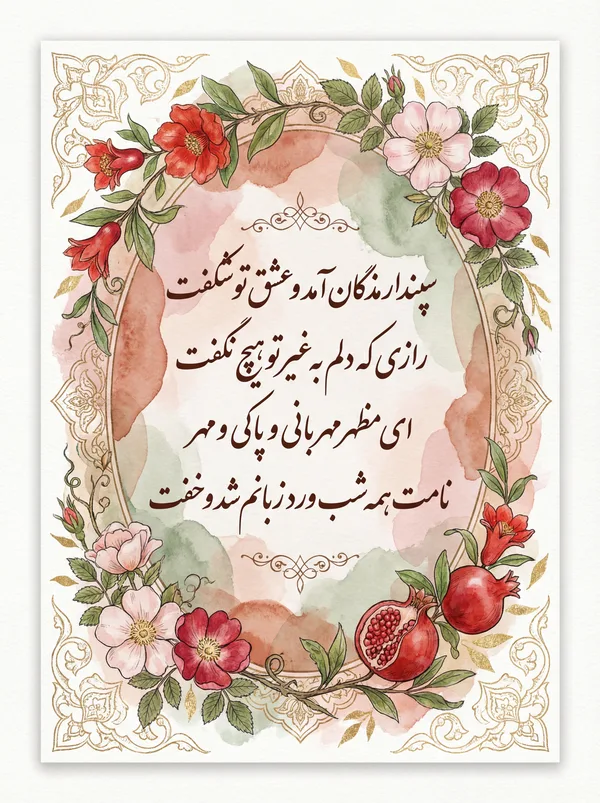 سپندارمذگان آمد و عشق تو شکفت
رازی که دلم به غیر تو هیچ نگفت
ای مظهر مهربانی و پاکی و مهر
نامت همه شب ورد زبانم شد و خفت